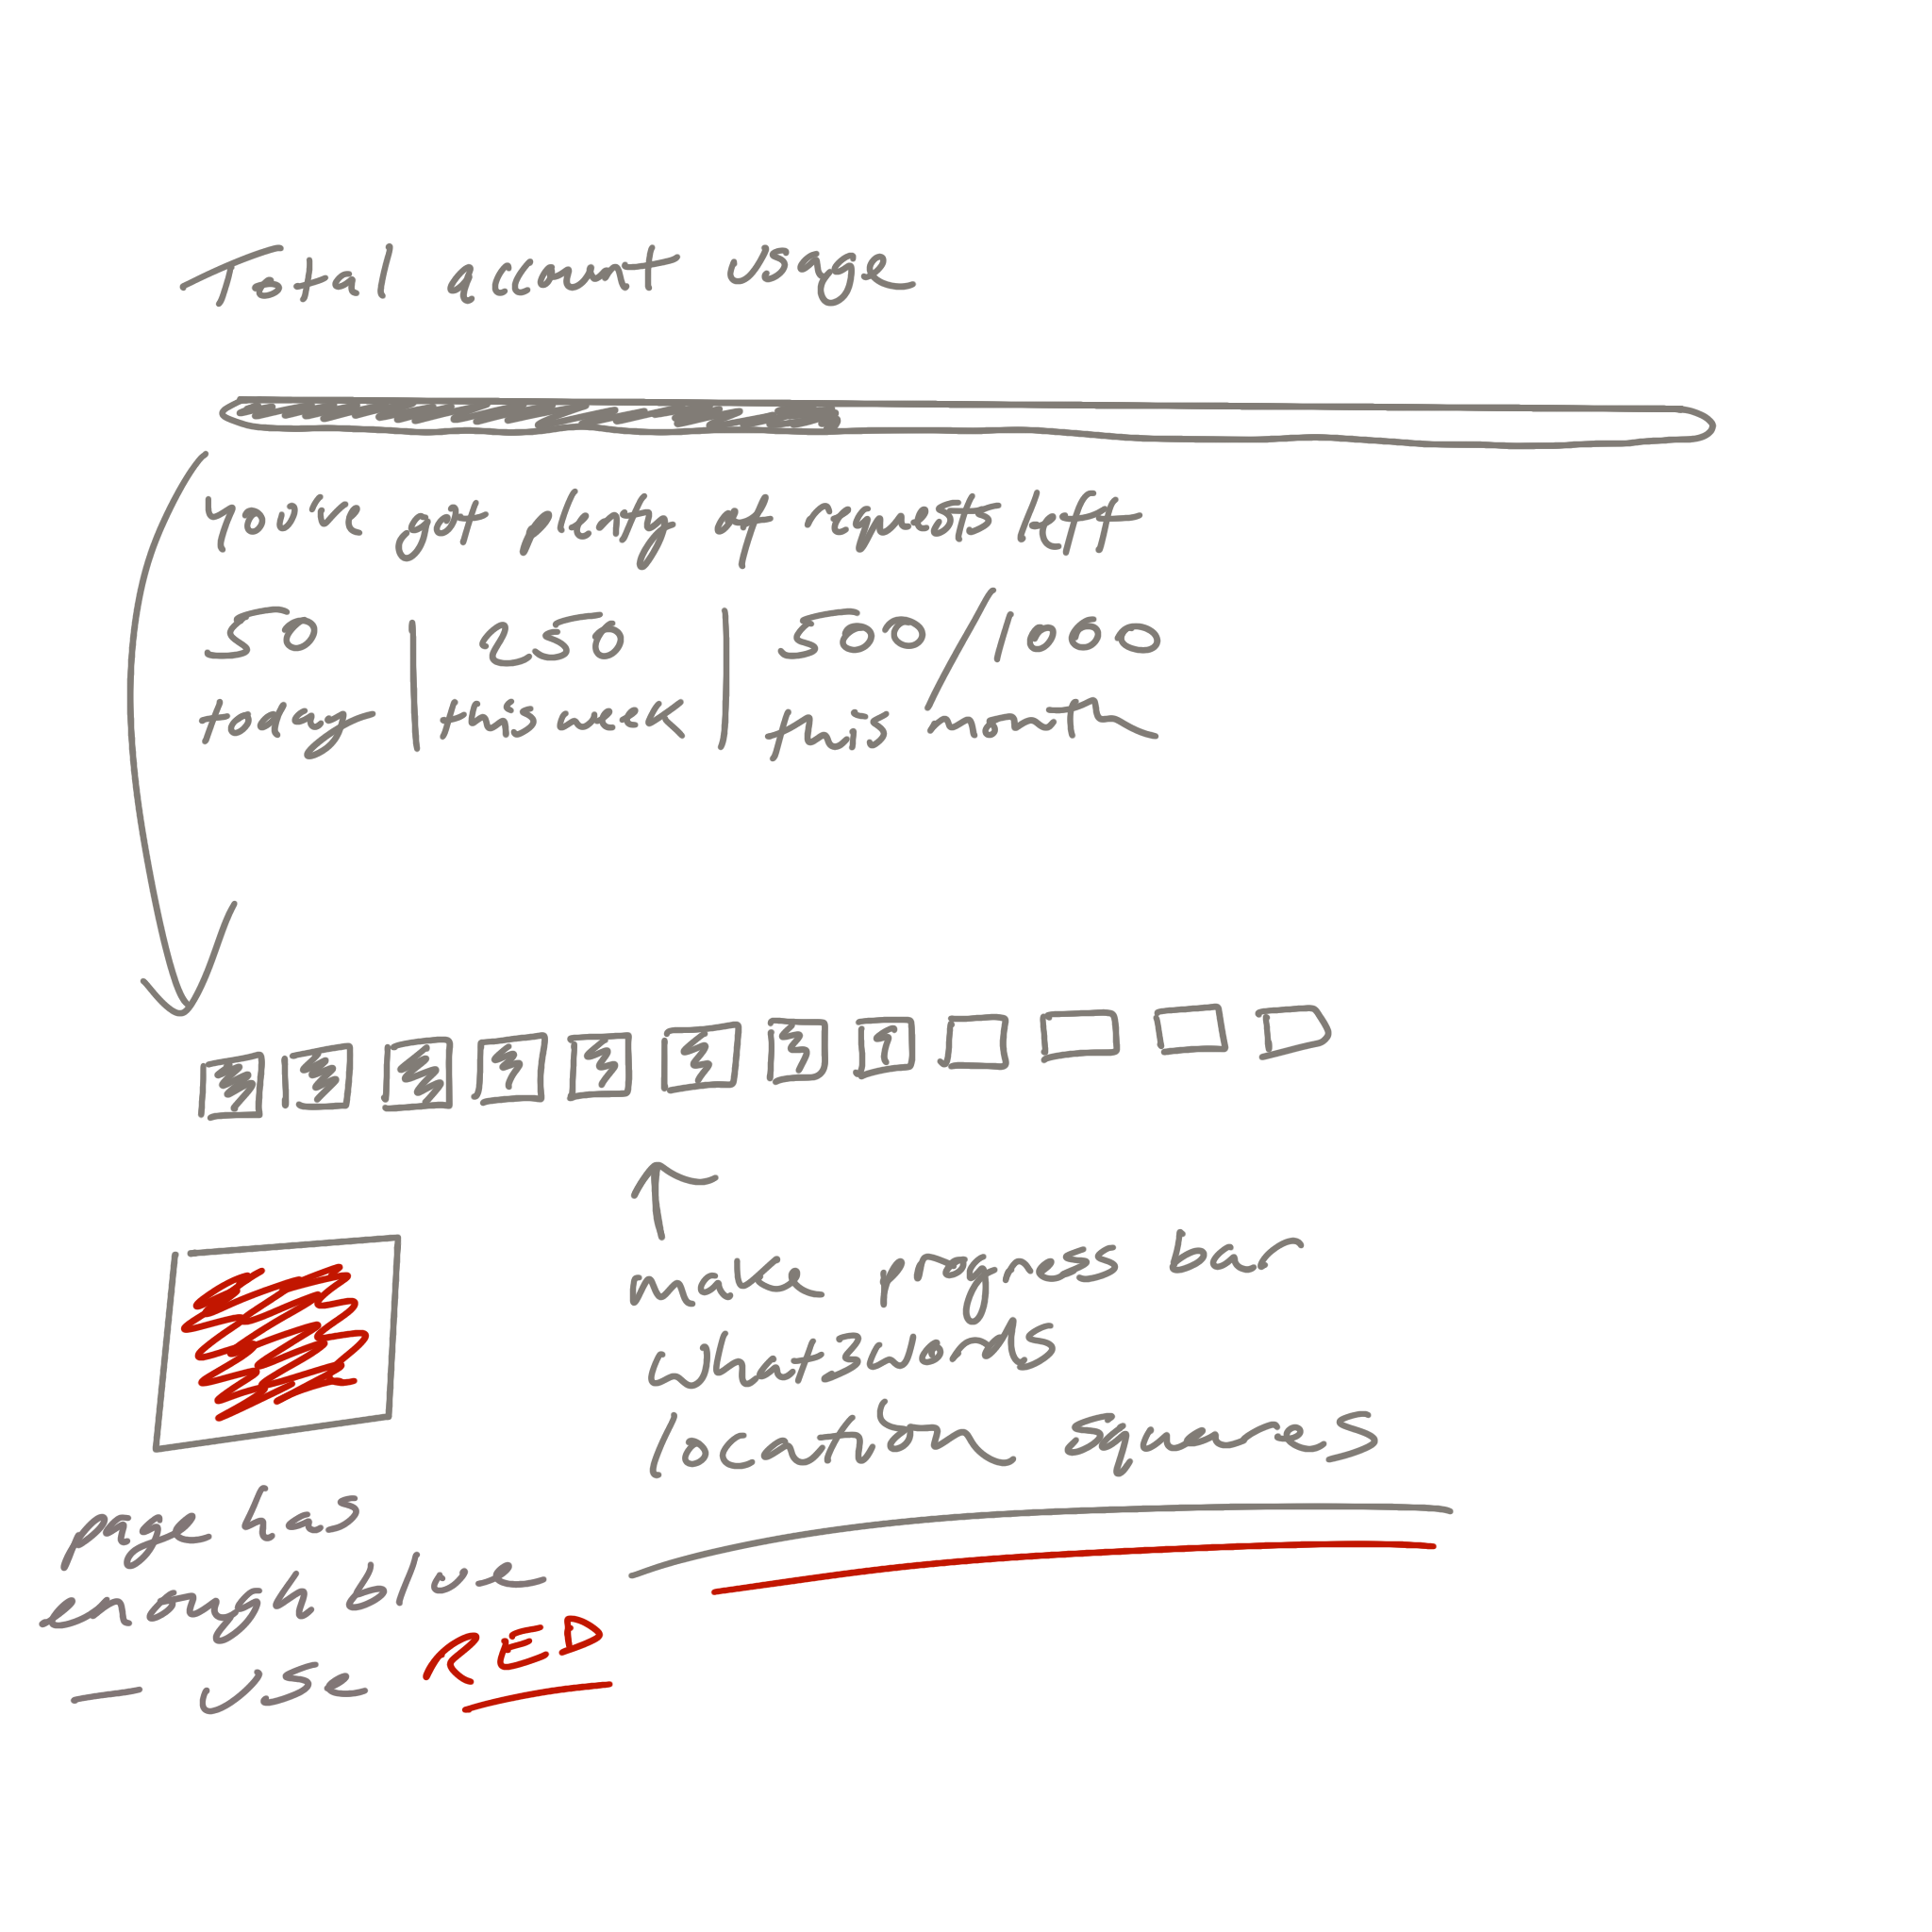 Total account usage
You've got plenty of requests left
50 | 250 | 500/1000
today | this week | this month
make progress bar
what3words
location squares
page has
enough blue
— use RED